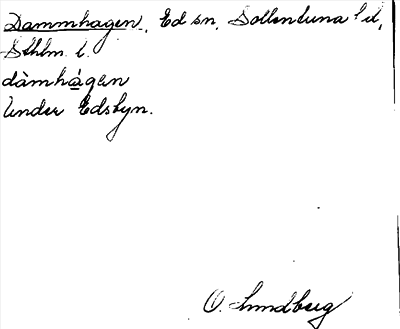 Dammhagen, Ed sn, Sollentuna hd,
Sthlm l.
dàmhágen
Under Edsbyn.
O. Lundberg